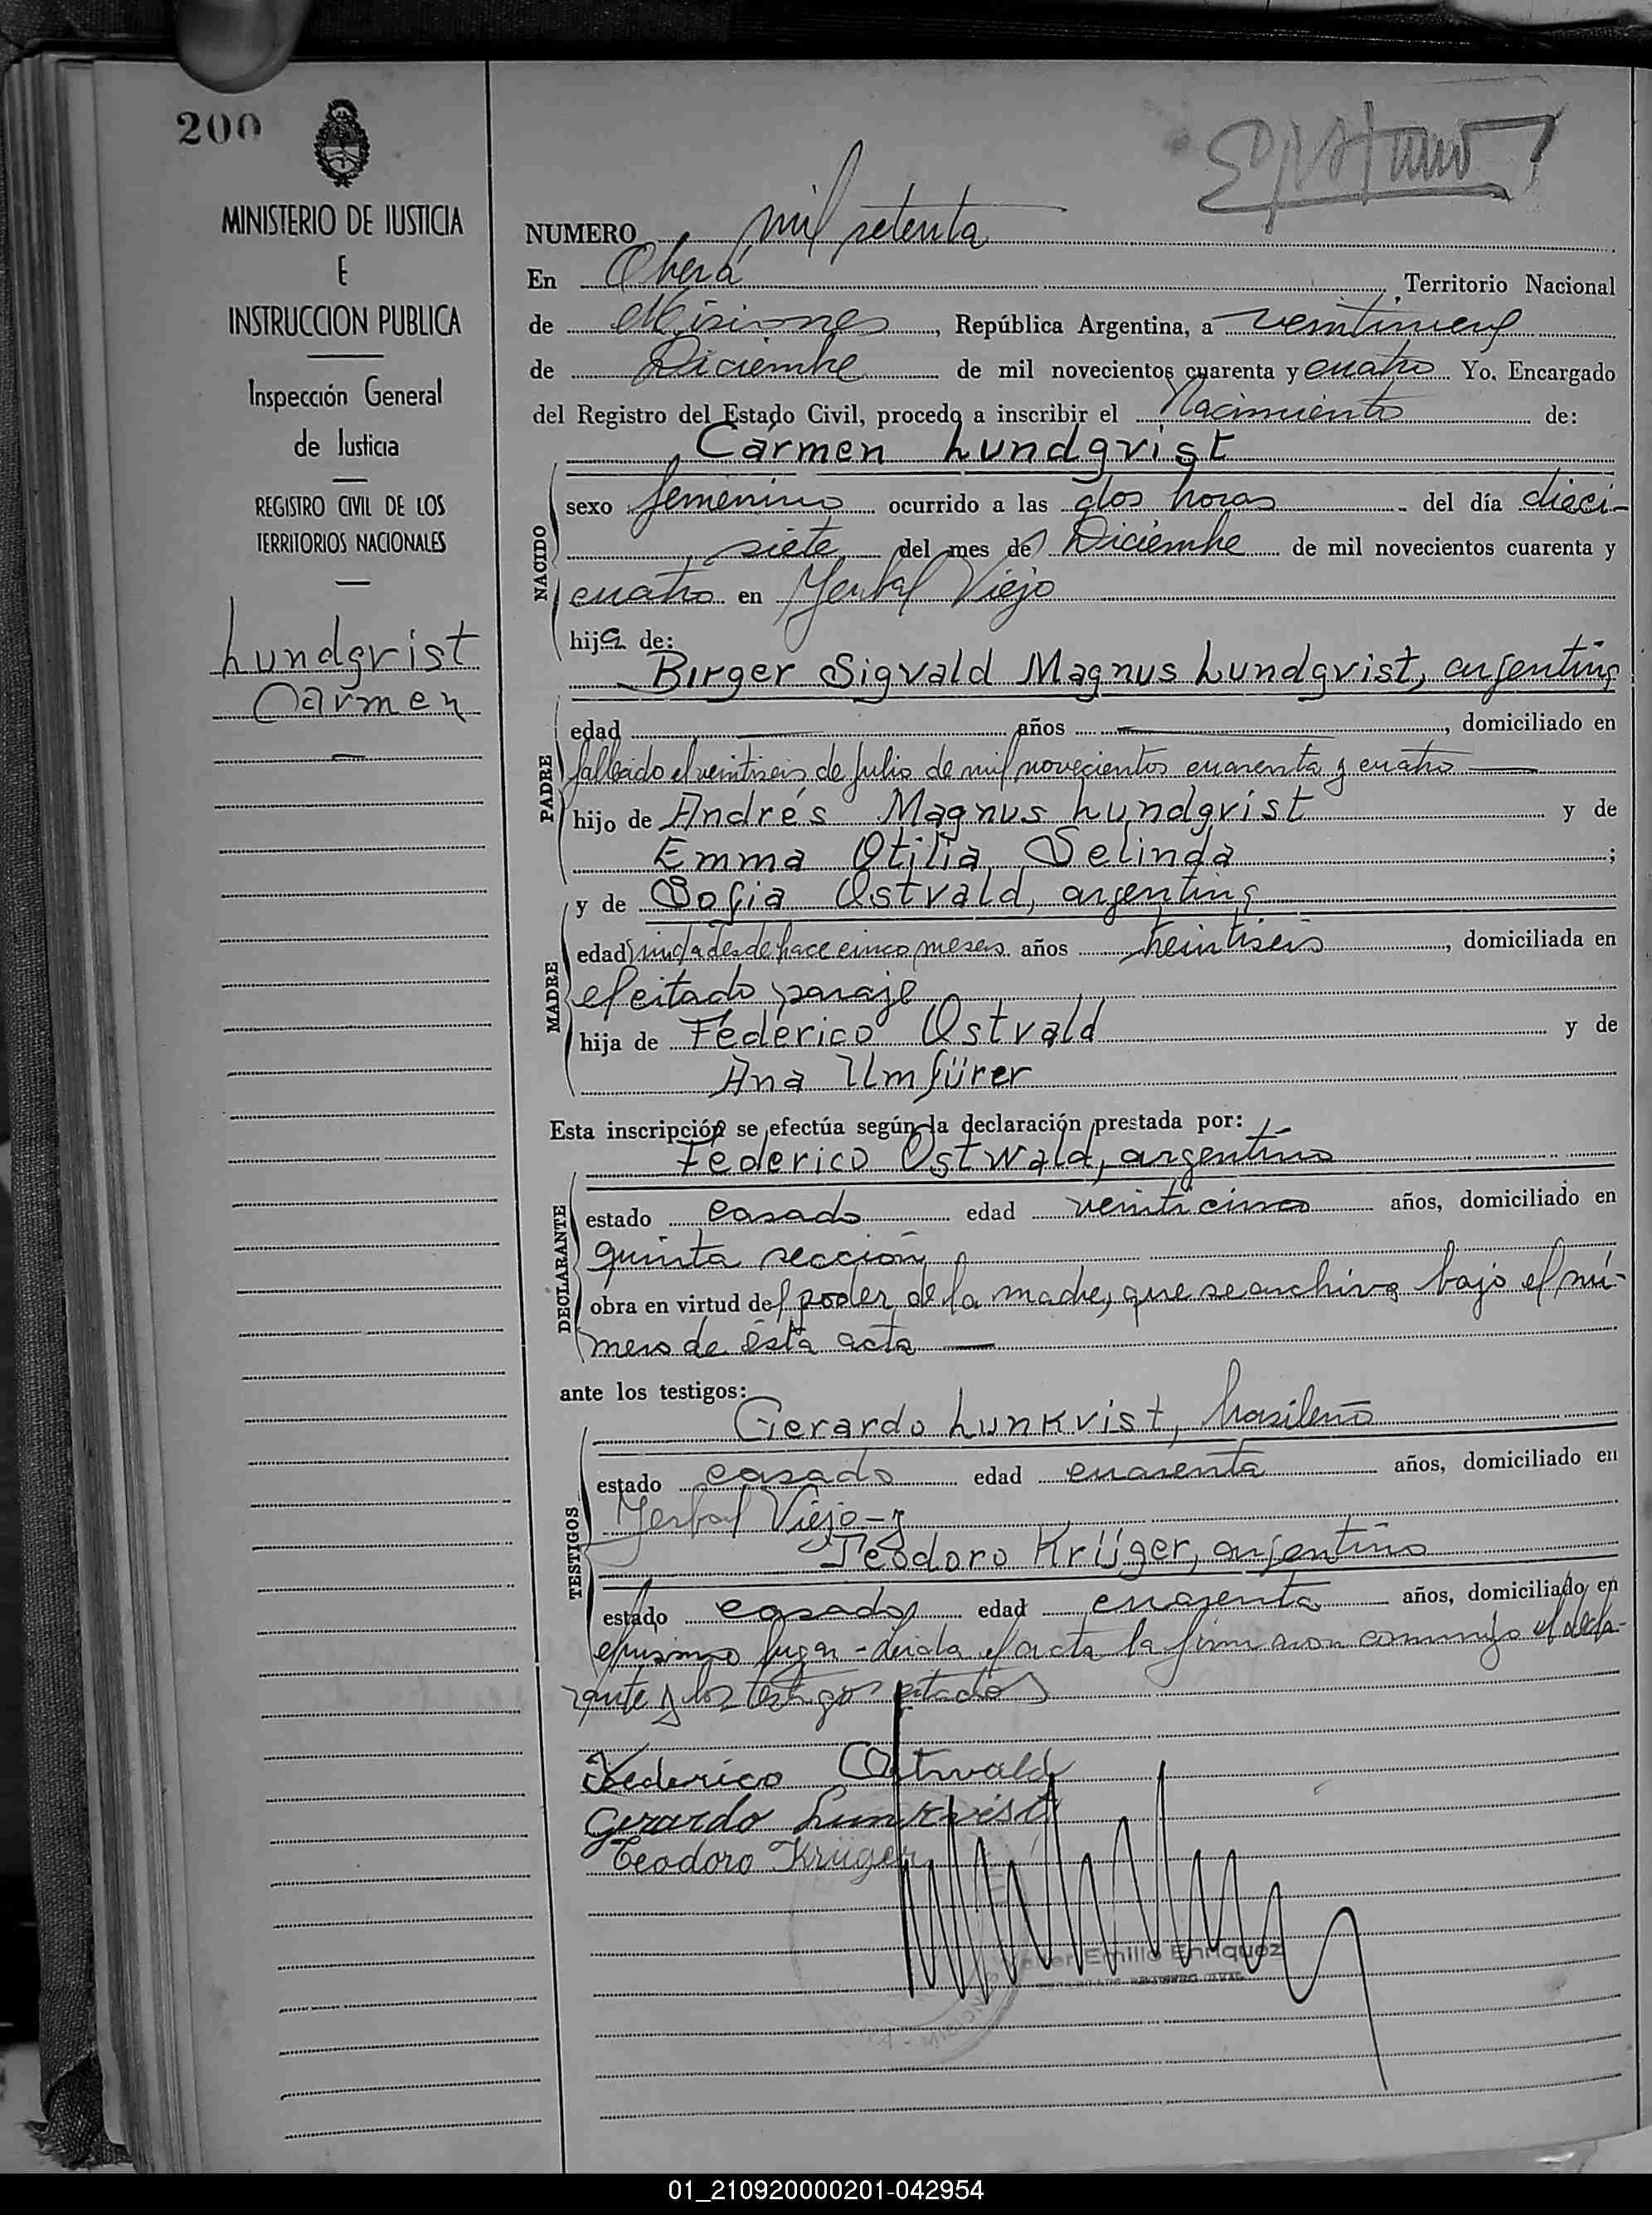 200
MINISTERIO DE JUSTICIA
E
INSTRUCCION PUBLICA
Inspección General
de Justicia
REGISTRO CIVIL DE LOS
TERRITORIOS NACIONALES
Lundqvist
Carmen
NUMERO mil setenta
En Oberá, Territorio Nacional
de Misiones, República Argentina, a veintinueve
de Diciembre de mil novecientos cuarenta y cuatro Yo, Encargado
del Registro del Estado Civil, procedo a inscribir el Nacimiento de:
Carmen Lundqvist
NACIDO
sexo femenino ocurrido a las dos horas del día dieci-
siete del mes de Diciembre de mil novecientos cuarenta y
cuatro en Yerbal Viejo
hija de:
Birger Sigvald Magnus Lundqvist, argentino
PADRE
edad años, domiciliado en
fallecido el veintiseis de Julio de mil novecientos cuarenta y cuatro
hijo de Andrés Magnus Lundqvist y de
Emma Otilia Selinda;
y de Sofia Ostvald, argentina
MADRE
edad viuda desde hace cinco meses años treintiseis, domiciliada en
el citado paraje
hija de Federico Ostvald y de
Ana Umfürer
Esta inscripción se efectúa según la declaración prestada por:
Federico Ostwald, argentino
DECLARANTE
estado casado edad veinticinco años, domiciliado en
quinta sección
obra en virtud del poder de la madre, que se archiva bajo el nú-
mero de ésta acta
ante los testigos:
Gerardo Lunkvist, brasileño
TESTIGOS
estado casado edad cuarenta años, domiciliado en
Yerbal Viejo-y
Teodoro Krüger, argentino
estado casado edad cuarenta años, domiciliado en
el mismo lugar - leida el acta la firmaron conmigo el decla-
rante y los testigos citados
Federico Ostwald
Gerardo Lunkvist
Teodoro Krüger
Emilio Enriquez
01_210920000201-042954